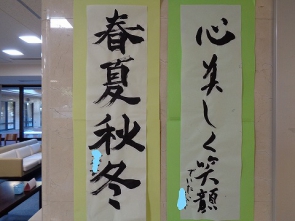 心美しく笑顔
春夏秋冬